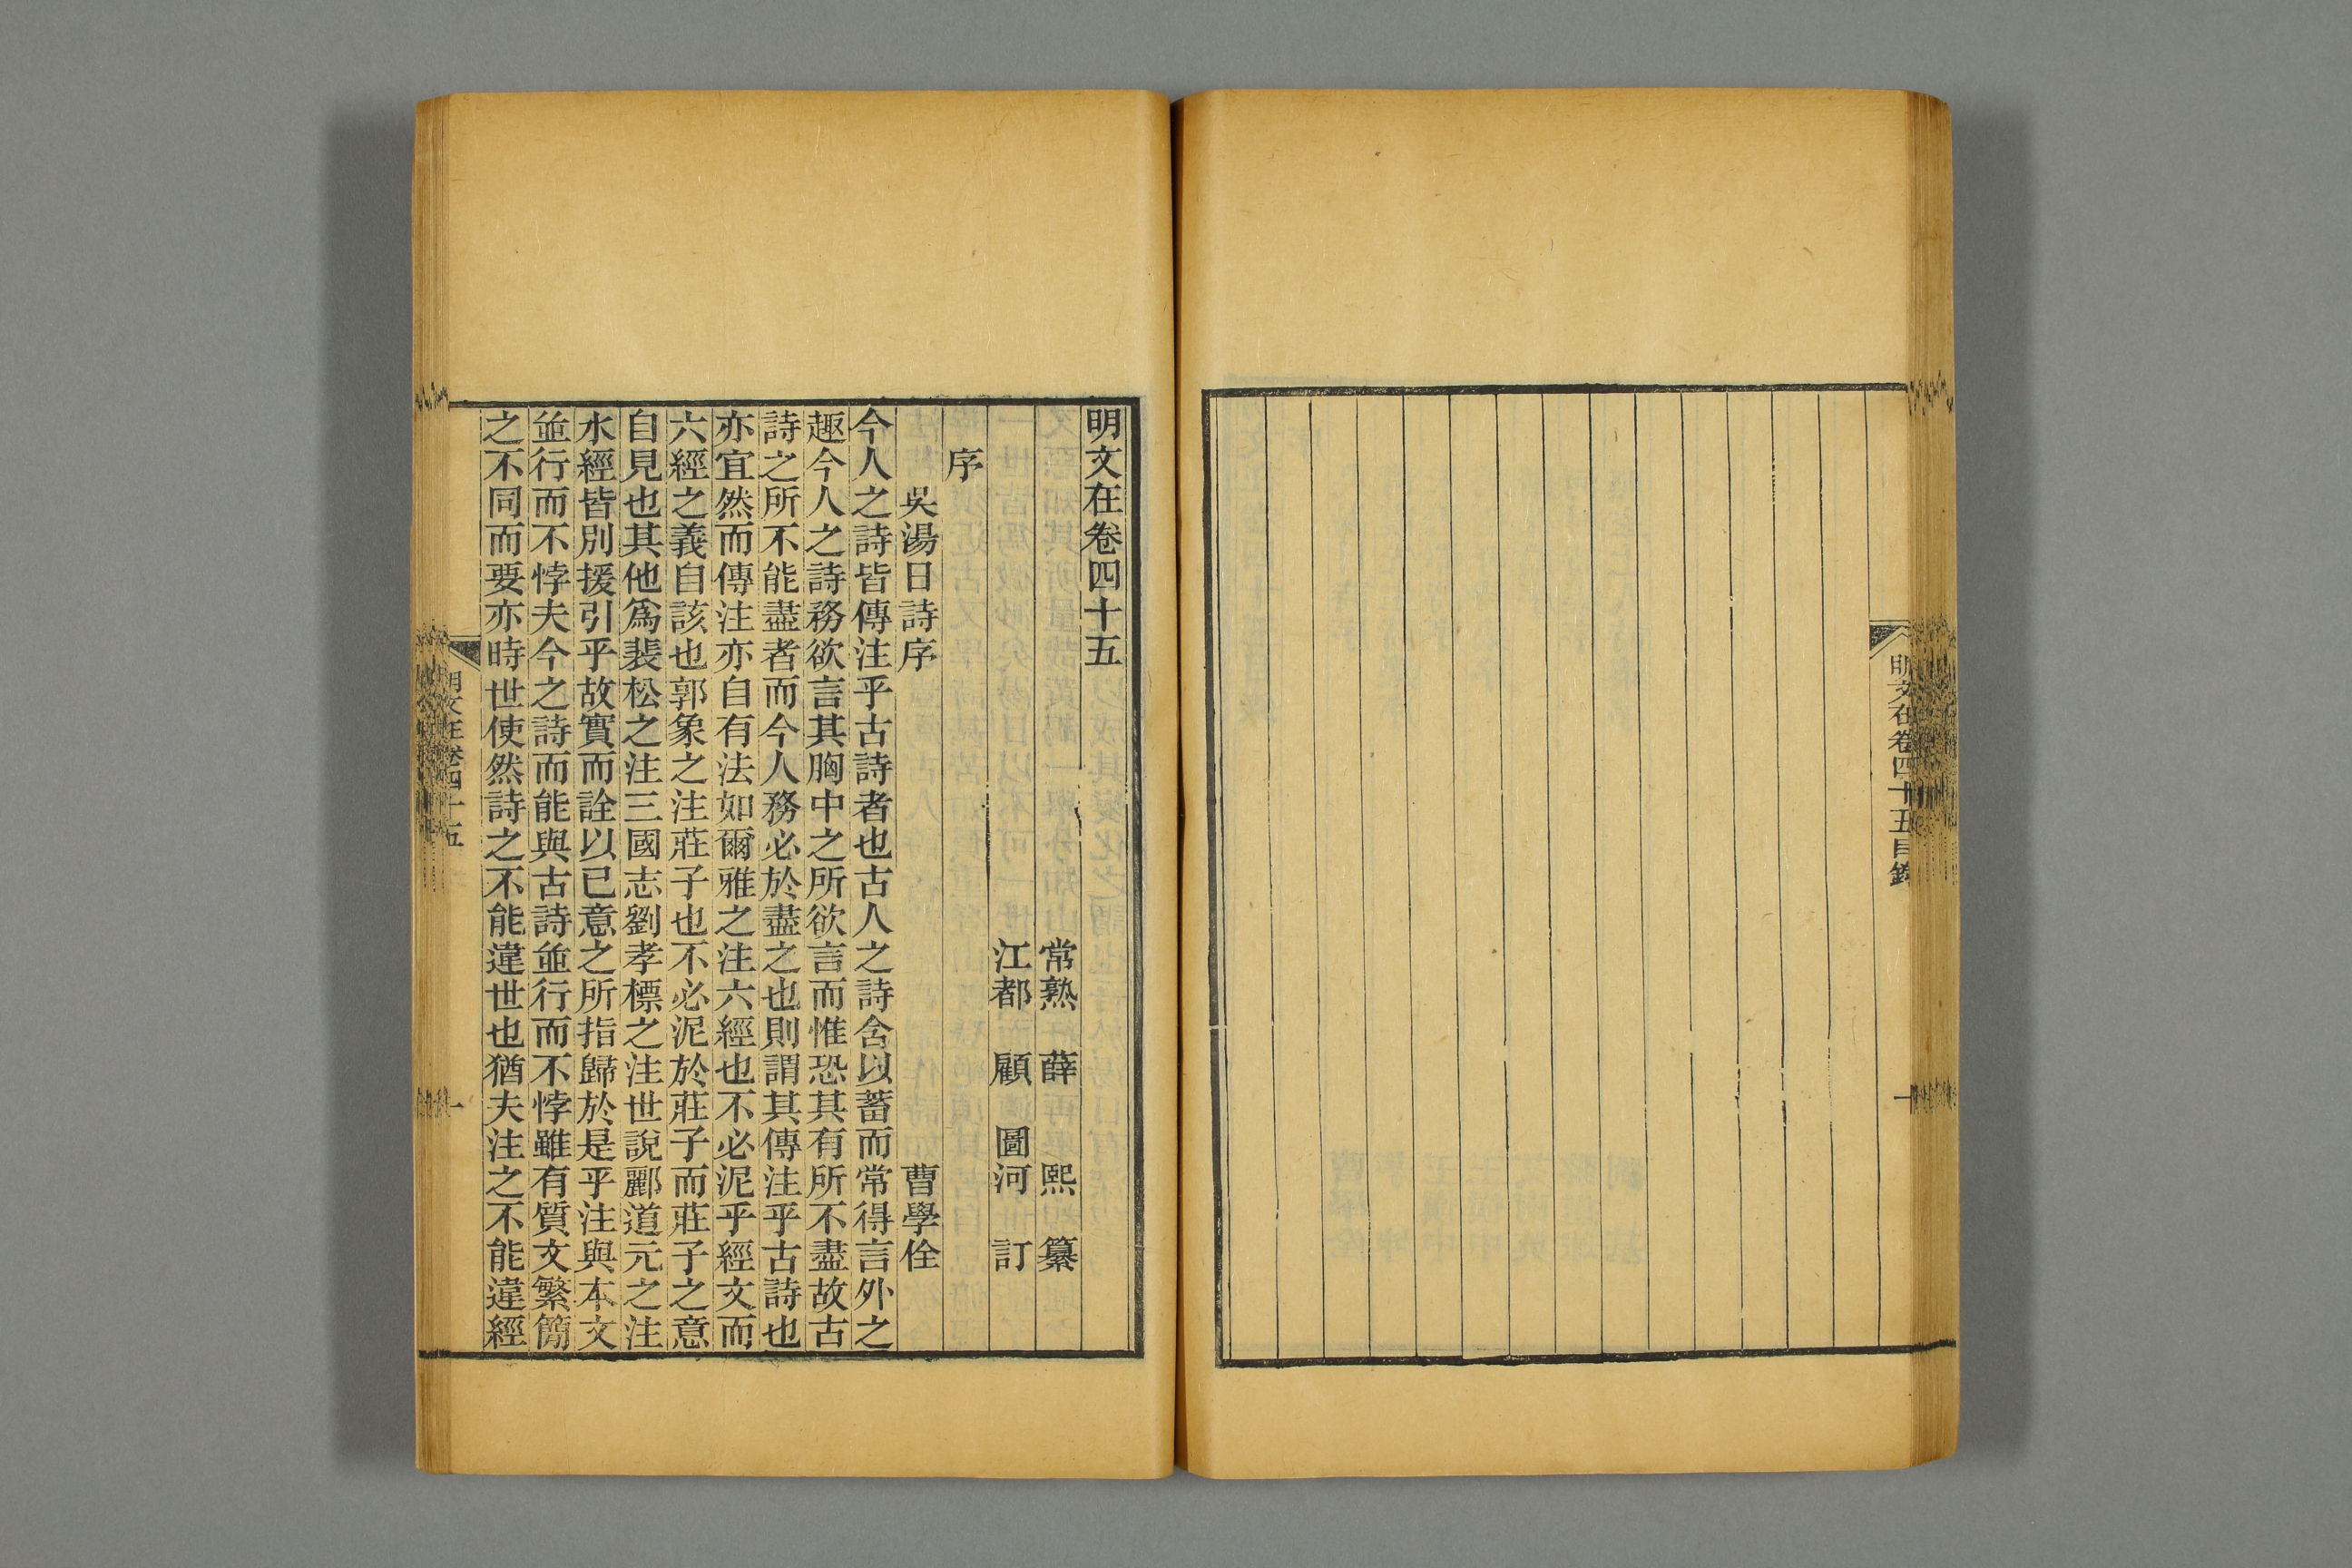 明文在卷四十五目錄
一
明文在卷四十五
常熟　薛　熙　纂
江都　顧　圖河　訂
序
吳湯日詩序　曹學佺
今人之詩皆傳注乎古詩者也古人之詩含以蓄而常得言外之
趣今人之詩務欲言其胸中之所欲言而惟恐其有所不盡故古
詩之所不能盡者而今人務必於盡之也則謂其傳注乎古詩也
亦宜然而傳注亦自有法如爾雅之注六經也不必泥乎經文而
六經之義自該也郭象之注莊子也不必泥於莊子而莊子之意
自見也其他爲裴松之注三國志劉孝標之注世說酈道元之注
水經皆別援引乎故實而詮以已意之所指歸於是乎注與本文
並行而不悖夫今之詩而能與古詩並行而不悖雖有質文繁簡
之不同而要亦時世使然詩之不能違世也猶夫注之不能違經
明文在卷四十五
一